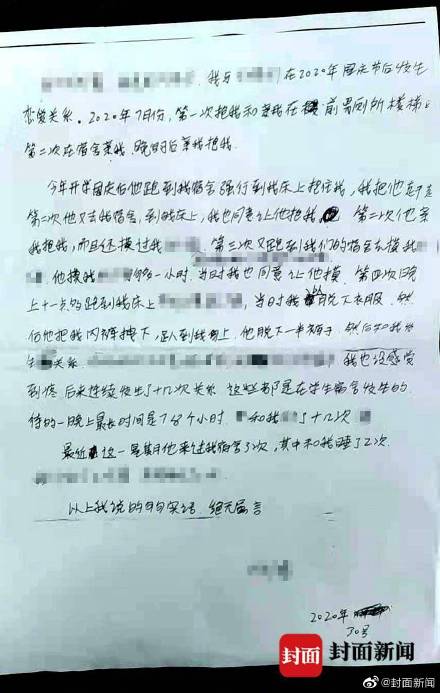 我与 在2020年国庆节后发生
恋爱关系。2020年7月份,第一次抱我和亲我在 前男厕所楼梯。
第二次在宿舍亲我、晚时后亲我抱我
今年开学国庆后他跑到我宿舍强行到我床上抱住我,我把他
第二次他又去我宿舍,到我床上,我也同意让他抱我。第二次他亲
我抱我,而且还摸过我 。第三次又跑到我们的宿舍去摸我
。他摸我 一小时。当时我也同意让他摸。第四次晚
上十一点多跑到我床上 ,当时我 脱下衣服。然
后他把我内裤拽下,趴到我身上,他脱下一半裤子,然后和我发
生 关系 我也没感觉
到疼,后来连续发生了十几次关系,这些都是在学生宿舍发生的
待的一晚上最长时间是7、8个小时。 和我 了十几次
最近 这一星期他来过我宿舍3次,其中和我睡了2次。
以上我说的句句实话,绝无虚言
2020年
30号
封面 封面新闻
@封面新闻